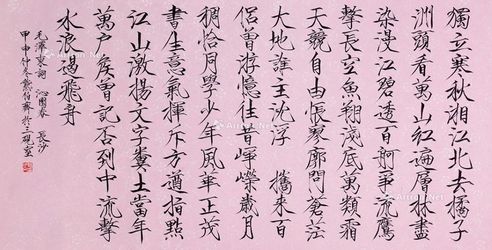 獨立寒秋湘江北去橘子
洲頭看萬山紅遍層林盡
染漫江碧透百舸爭流鷹
擊長空魚翔淺底萬類霜
天競自由悵寥廓問蒼茫
大地誰主沈浮 攜來百
侶曾游憶往昔崢嶸歲月
稠恰同學少年風華正茂
書生意氣揮斥方遒指點
江山激揚文字糞土當年
萬戶侯曾記否到中流擊
水浪遏飛舟
毛澤東詞 沁園春 長沙
甲申仲冬 於三硯室